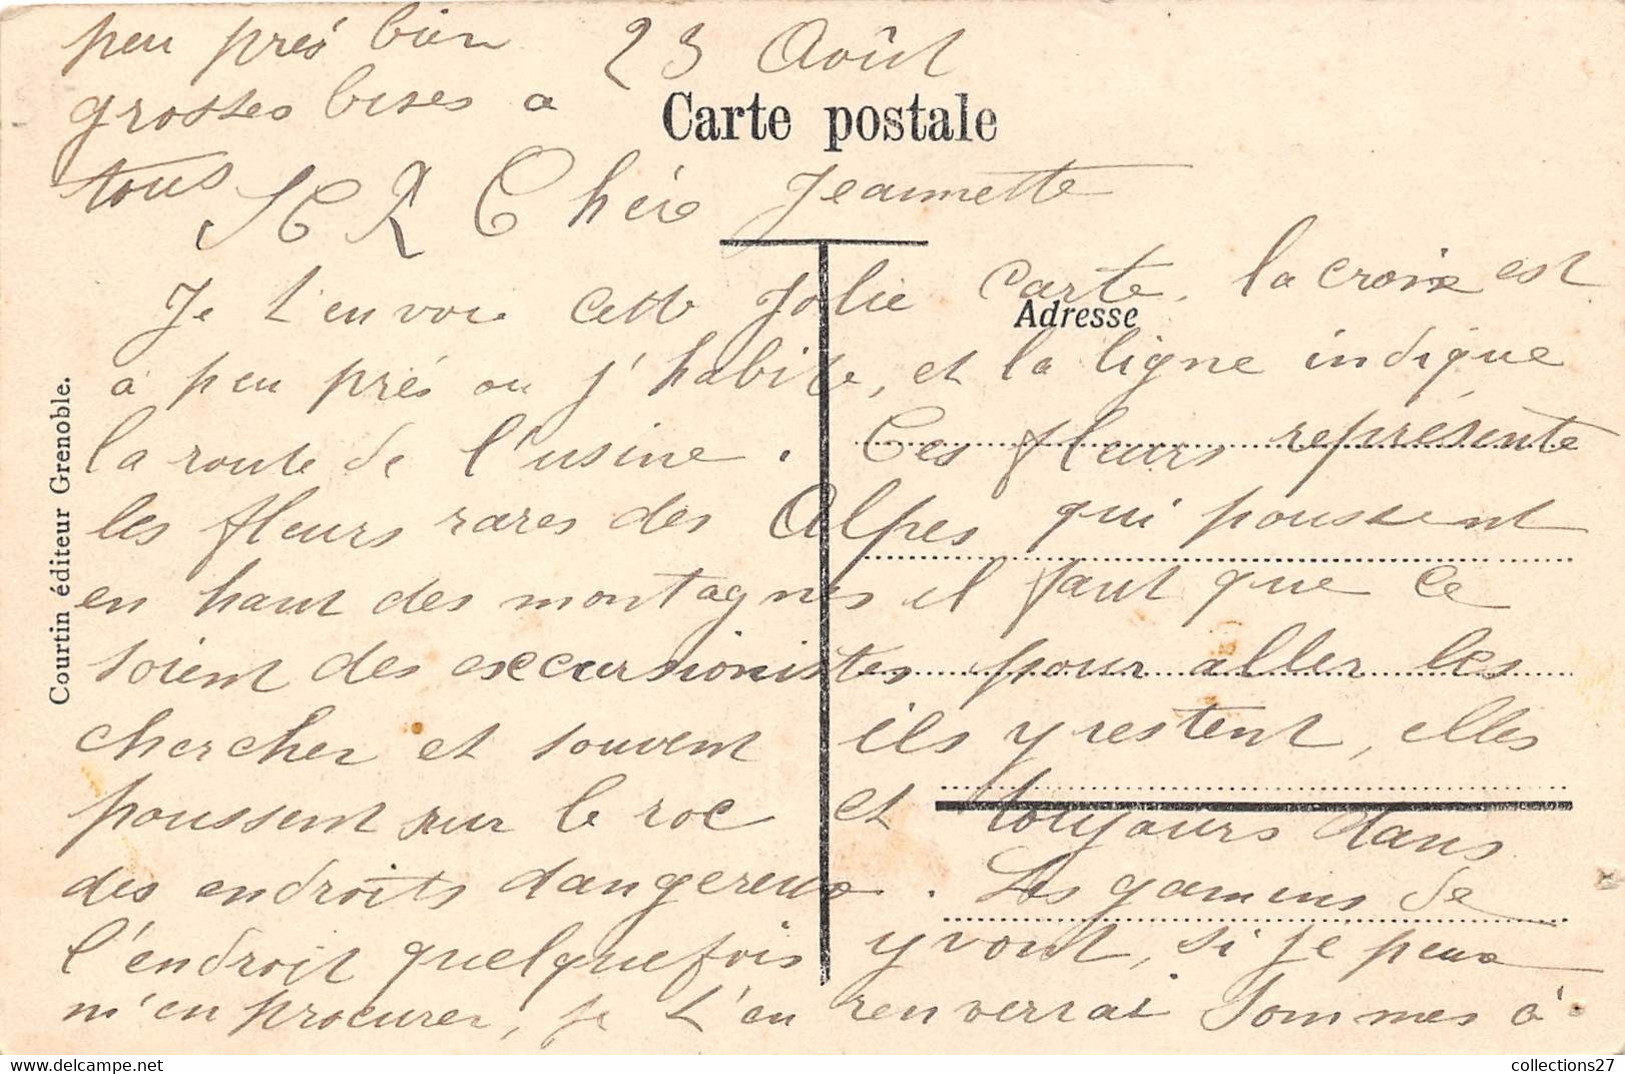 peu près bien 23 Août
grosses bises a
Carte postale
tous Chère Jeannette
Je t'envoie cette Jolie carte, la croix est
Adresse
à peu près ou j'habite, et la ligne indique
la route de l'usine. Ces fleurs représente
les fleurs rares des Alpes qui poussent
en haut des montagnes il faut que ce
soient des excursionistes pour aller les
chercher et souvent ils y restent, elles
poussent sur le roc et toujours dans
des endroits dangereux. Les gamins de
l'endroit quelquefois y vont, si je peux
m'en procurer, je t'en renverrai Sommes à
Courtin éditeur Grenoble.
collections27